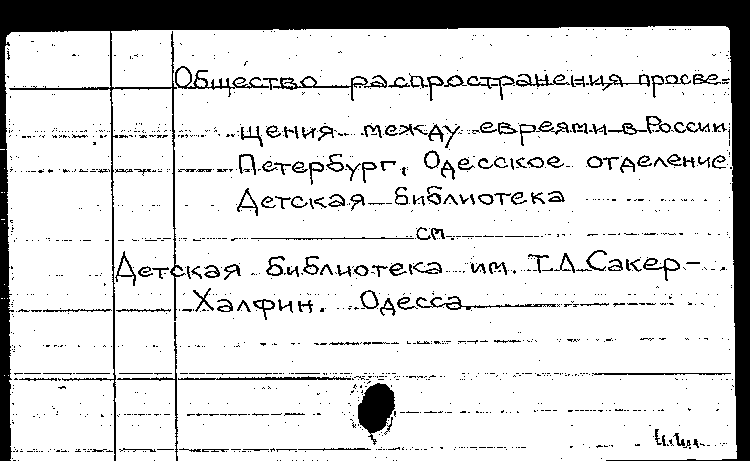 Общество распространения просве=
щения между евреями в России
Петербург. Одесское отделение
Детская библиотека
см.
Детская библиотека им. Т.Д. Сакер-
Халфин. Одесса.